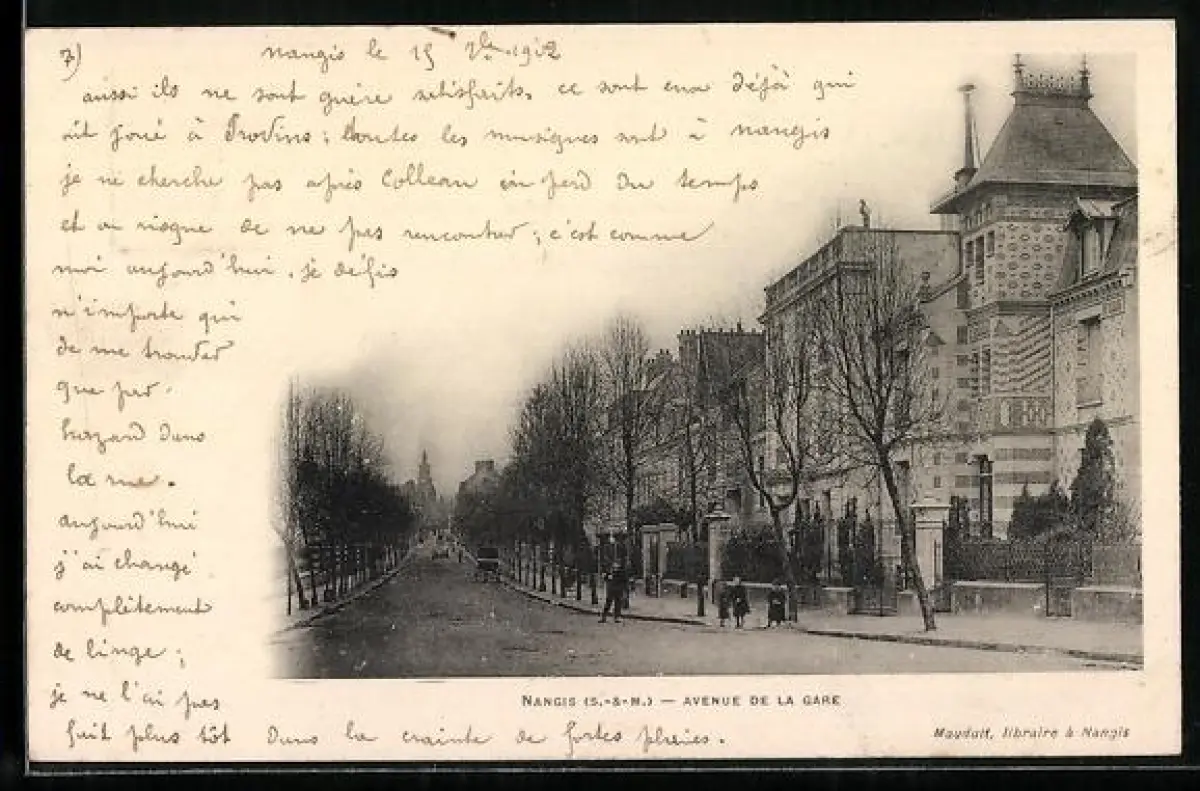 7)
Nangis le 15 7bre 1912
aussi ils ne sont guère satisfaits. ce sont eux déjà qui
ont joué à Provins ; toutes les musiques sont à Nangis
je ne cherche pas après Colleau on perd du temps
et on risque de ne pas rencontrer ; c'est comme
moi aujourd'hui. je défis
n'importe qui
de me trouver
que par
hazard dans
la rue.
aujourd'hui
j'ai changé
complètement
de linge ;
je ne l'ai pas
fait plus tôt dans la crainte de fortes pluies.
NANGIS (S.-&-M.) — AVENUE DE LA GARE
Mauduit, libraire à Nangis